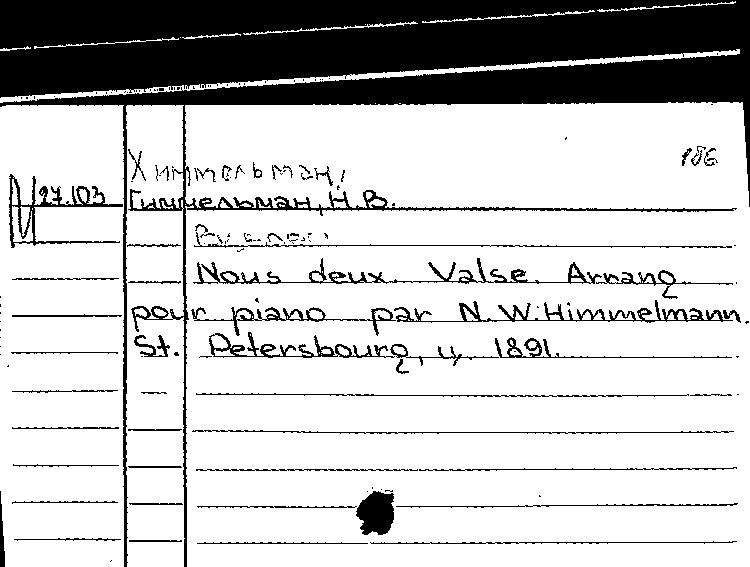 Химмельман, 186
М 27.103 Гиммельман, Н.В.
Nous deux. Valse. Arrang
pour piano par N.W. Himmelmann.
St. Petersbourg, ц, 1891.